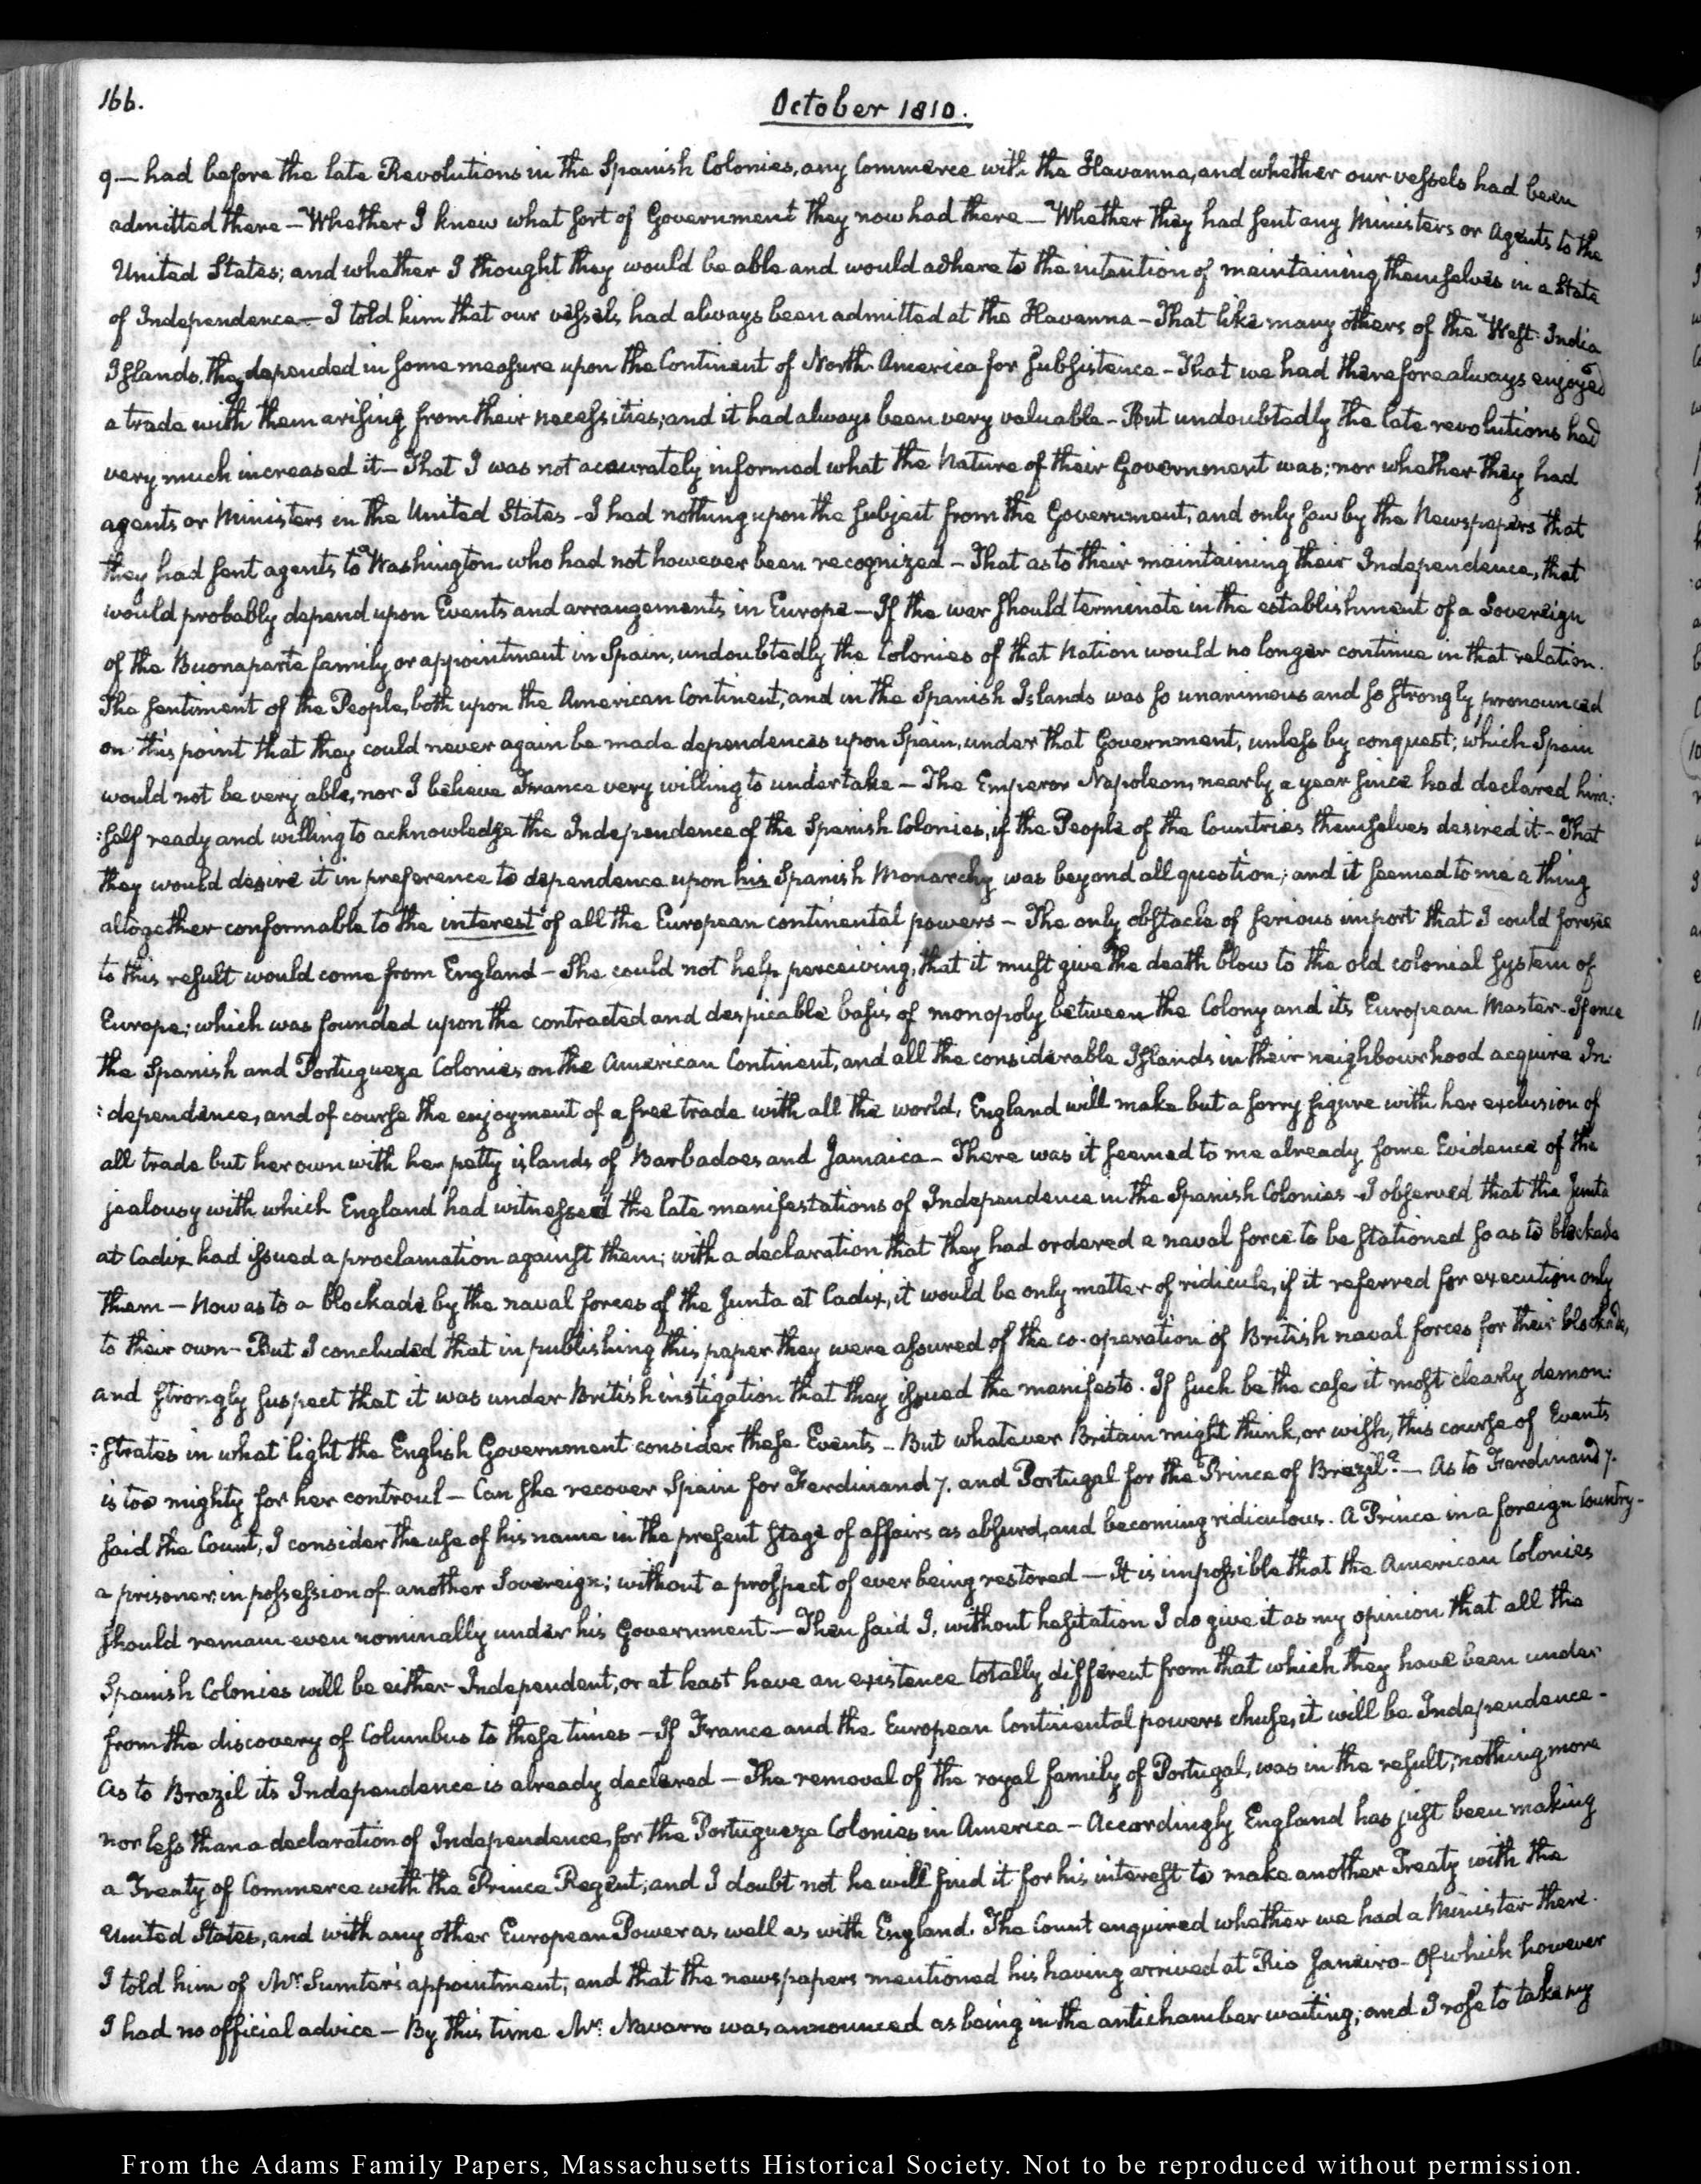 166.
October 1810.
9— had before the late Revolutions in the Spanish Colonies, any Commerce with the Havanna, and whether our vessels had been
admitted there — Whether I knew what sort of Government they now had there — Whether they had sent any Ministers or Agents to the
United States; and whether I thought they would be able and would adhere to the intention of maintaining themselves in a State
of Independence — I told him that our vessels had always been admitted at the Havanna — That like many others of the West-India
Islands, they depended in some measure upon the Continent of North-America for subsistence — That we had therefore always enjoyed
a trade with them arising from their necessities; and it had always been very valuable — But undoubtedly the late revolutions had
very much increased it — That I was not accurately informed what the Nature of their Government was; nor whether they had
agents or Ministers in the United States — I had nothing upon the subject from the Government, and only saw by the Newspapers that
they had sent agents to Washington who had not however been recognized — That as to their maintaining their Independence, that
would probably depend upon Events and arrangements in Europe — If the war should terminate in the establishment of a Sovereign
of the Buonaparte family or appointment in Spain, undoubtedly the Colonies of that Nation would no longer continue in that relation.
The sentiment of the People, both upon the American Continent, and in the Spanish Islands was so unanimous and so strongly pronounced
on this point that they could never again be made dependences upon Spain, under that Government, unless by conquest; which Spain
would not be very able, nor I believe France very willing to undertake — The Emperor Napoleon, nearly a year since had declared him:
:self ready and willing to acknowledge the Independence of the Spanish Colonies, if the People of the Countries themselves desired it — That
they would desire it in preference to dependence upon his Spanish Monarchy was beyond all question; and it seemed to me a thing
altogether conformable to the interest of all the European continental powers — The only obstacle of serious import that I could foresee
to this result would come from England — She could not help perceiving, that it must give the death blow to the old colonial system of
Europe; which was founded upon the contracted and despicable basis of monopoly between the Colony and its European Master. If once
the Spanish and Portugueze Colonies on the American Continent, and all the considerable Islands in their neighbourhood acquire In:
:dependence, and of course the enjoyment of a free trade with all the world, England will make but a sorry figure with her exclusion of
all trade but her own with her petty islands of Barbadoes and Jamaica — There was it seemed to me already some Evidence of the
jealousy with which England had witnessed the late manifestations of Independence in the Spanish Colonies — I observed that the Junta
at Cadix had issued a proclamation against them; with a declaration that they had ordered a naval force to be stationed so as to blockade
them — Now as to a blockade by the naval forces of the Junta at Cadix, it would be only matter of ridicule, if it referred for execution only
to their own — But I concluded that in publishing this paper they were assured of the co-operation of British naval forces for their blockade,
and strongly suspect that it was under British instigation that they issued the manifesto. If such be the case it most clearly demon:
:strates in what light the English Government consider these Events — But whatever Britain might think, or wish, this course of Events
is too mighty for her controul — Can she recover Spain for Ferdinand 7. and Portugal for the Prince of Brazil? — As to Ferdinand 7.
said the Count, I consider the use of his name in the present stage of affairs as absurd, and becoming ridiculous. A Prince in a foreign Country —
a prisoner: in possession of another Sovereign; without a prospect of ever being restored — It is impossible that the American Colonies
should remain even nominally under his Government — Then said I, without hesitation I do give it as my opinion that all the
Spanish Colonies will be either Independent, or at least have an existence totally different from that which they have been under
from the discovery of Columbus to these times — If France and the European Continental powers chuse, it will be Independence —
As to Brazil its Independence is already declared — The removal of the royal family of Portugal, was in the result, nothing more
nor less than a declaration of Independence, for the Portugueze Colonies in America — Accordingly England has just been making
a Treaty of Commerce with the Prince Regent, and I doubt not he will find it for his interest to make another Treaty with the
United States, and with any other European Power as well as with England. The Count enquired whether we had a Minister there.
I told him of Mr. Sumter's appointment, and that the newspapers mentioned his having arrived at Rio Janeiro — Of which however
I had no official advice — By this time Mr. Navarro was announced as being in the antichamber waiting; and I rose to take my
From the Adams Family Papers, Massachusetts Historical Society. Not to be reproduced without permission.